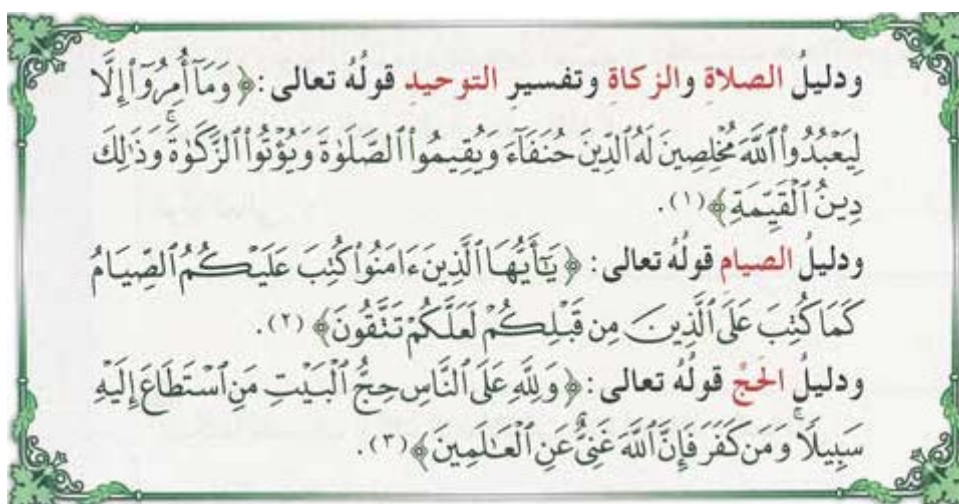 ودليلُ الصلاةِ والزكاةِ وتفسيرِ التوحيدِ قولُهُ تعالى: ﴿وَمَآ أُمِرُوٓاْ إِلَّا
لِيَعۡبُدُواْ ٱللَّهَ مُخۡلِصِينَ لَهُ ٱلدِّينَ حُنَفَآءَ وَيُقِيمُواْ ٱلصَّلَوٰةَ وَيُؤۡتُواْ ٱلزَّكَوٰةَۚ وَذَٰلِكَ
دِينُ ٱلۡقَيِّمَةِ﴾(١).
ودليلُ الصيامِ قولُهُ تعالى: ﴿يَٰٓأَيُّهَا ٱلَّذِينَ ءَامَنُواْ كُتِبَ عَلَيۡكُمُ ٱلصِّيَامُ
كَمَا كُتِبَ عَلَى ٱلَّذِينَ مِن قَبۡلِكُمۡ لَعَلَّكُمۡ تَتَّقُونَ﴾ (٢).
ودليلُ الحَجِّ قولُهُ تعالى: ﴿وَلِلَّهِ عَلَى ٱلنَّاسِ حِجُّ ٱلۡبَيۡتِ مَنِ ٱسۡتَطَاعَ إِلَيۡهِ
سَبِيلٗاۚ وَمَن كَفَرَ فَإِنَّ ٱللَّهَ غَنِيٌّ عَنِ ٱلۡعَٰلَمِينَ﴾(٣).